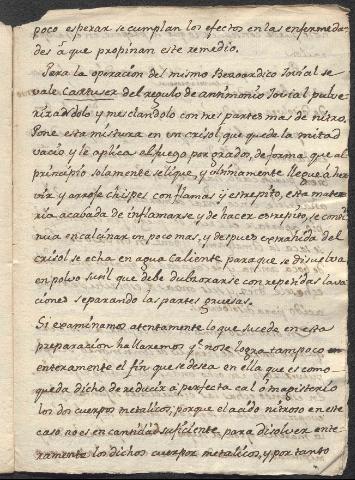 poco esperar se cumplan los efectos en las enfermeda-
des â que propinan este remedio.
Para la operacion del mismo Bezoardico Iovial se
vale Cartuser del regulo de antimonio Iovial pulve-
rizadolo y mesclandolo con tres partes mas de nitro.
Pone esta mistura en un crisol, que quede la mitad
vacio y le aplica al fuego por grados, de forma que al
principio solamente se lique, y ultimamente llegue a her-
vir y arroje chispes con flamas y estrepito, esta mate-
ria acabada de inflamarse y de hacer estrepito, se conti-
nua en calcinar un poco mas, y despues extraiida del
crisol se echa en agua caliente para que se disuelva
en polvo sutil que debe dulzorarse con repetidas lava-
ciones separando las partes gruesas.
Si examinamos atentamente lo que sucede en esta
preparacion hallaremos q.e no se logra tampoco en
enteramente el fin que se desea en ella que es como
queda dicho de reducir â perfecta cal ô magisterio
los dos cuerpos metalicos, porque el acido nitroso en este
caso no es en cantidad suficiente para disolver ente-
ramente los dichos cuerpos metalicos, y por tanto